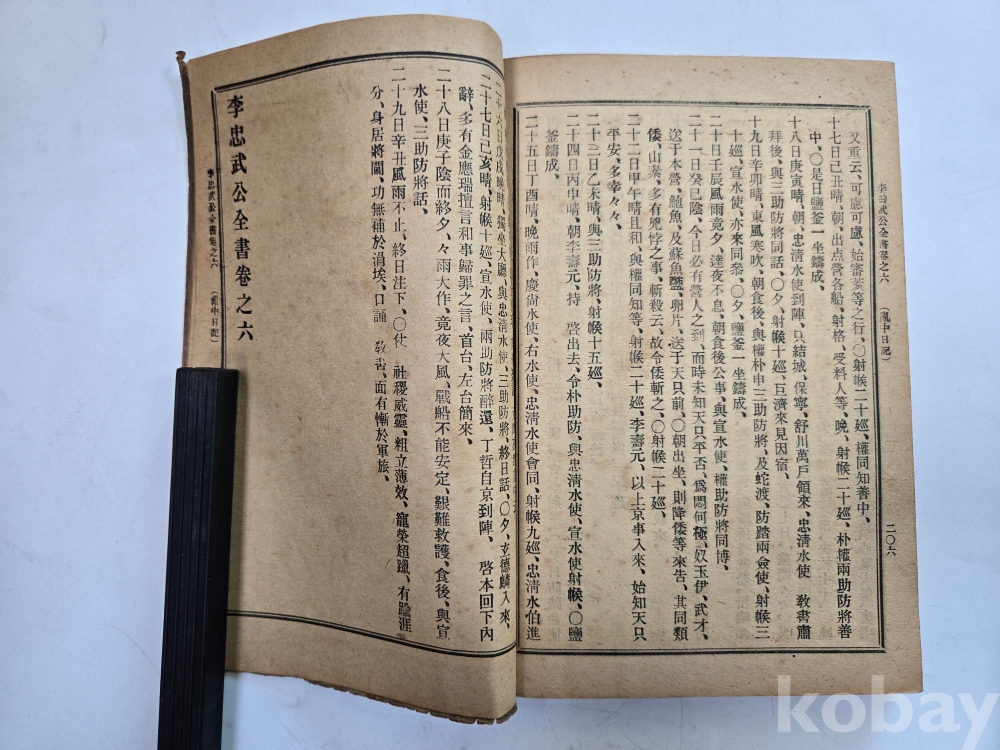 李忠武公全書卷之六 (亂中日記) 二〇六
又重云、可慮可慮、始審蒌等之行、〇射帿二十廵、權同知善中、
十七日己丑晴、朝、出点營各船、射格、受料人等、晚、射帿二十廵、朴權兩助防將善
中、〇是日鹽釜一坐鑄成、
十八日庚寅晴、朝、忠淸水使到陣、只結城、保寧、舒川萬戶領來、忠淸水使 敎書肅
拜後、與三助防將同話、〇夕、射帿十廵、巨濟來見因宿、
十九日辛卯晴、東風寒吹、朝食後、與權朴申三助防將、及蛇渡、防踏兩僉使、射帿三
十廵、宣水使、亦來同叅、〇夕、鹽釜一坐鑄成、
二十日壬辰風雨竟夕、達夜不息、朝食後公事、與宣水使、權助防將同博、
二十一日癸巳陰、今日必有營人之到、而時未知天只平否、爲悶何極、奴玉伊、武才、
送于本營、鮑魚、及蘇魚醢、卵片、送于天只前、〇朝出坐、則降倭等來告、其同類
倭、山素、多有兇悖之事、斬殺云、故令倭斬之、〇射帿二十廵、
二十二日甲午晴且和、與權同知等、射帿二十廵、李壽元、以上京事入來、始知天只
平安、多幸々々、
二十三日乙未晴、與三助防將、射帿十五廵、
二十四日丙申晴、朝李壽元、持 啓出去、令朴助防、與忠淸水使、宣水使射帿、〇鹽
釜鑄成、
二十五日丁酉晴、晚雨作、慶尙水使、右水使、忠淸水使會同、射帿九廵、忠淸水伯進
二十六日戊戌晚晴、獨坐大廳、與忠淸水使、三助防將、終日話、〇夕、玄德麟入來、
二十七日己亥晴、射帿十廵、宣水使、兩助防將醉還、丁哲自京到陣、 啓本回下內
辭、多有金應瑞擅言和事歸罪之言、首台、左台簡來、
二十八日庚子陰而終夕、々雨大作、竟夜大風、戰船不能安定、艱難救護、食後、與宣
水使、三助防將話、
二十九日辛丑風雨不止、終日注下、〇仗 社稷威靈、粗立薄效、寵榮超躐、有踰涯
分、身居將閫、功無補於涓埃、口誦 敎書、面有慚於軍旅、
李忠武公全書卷之六 (亂中日記)
李忠武公全書卷之六
kobay